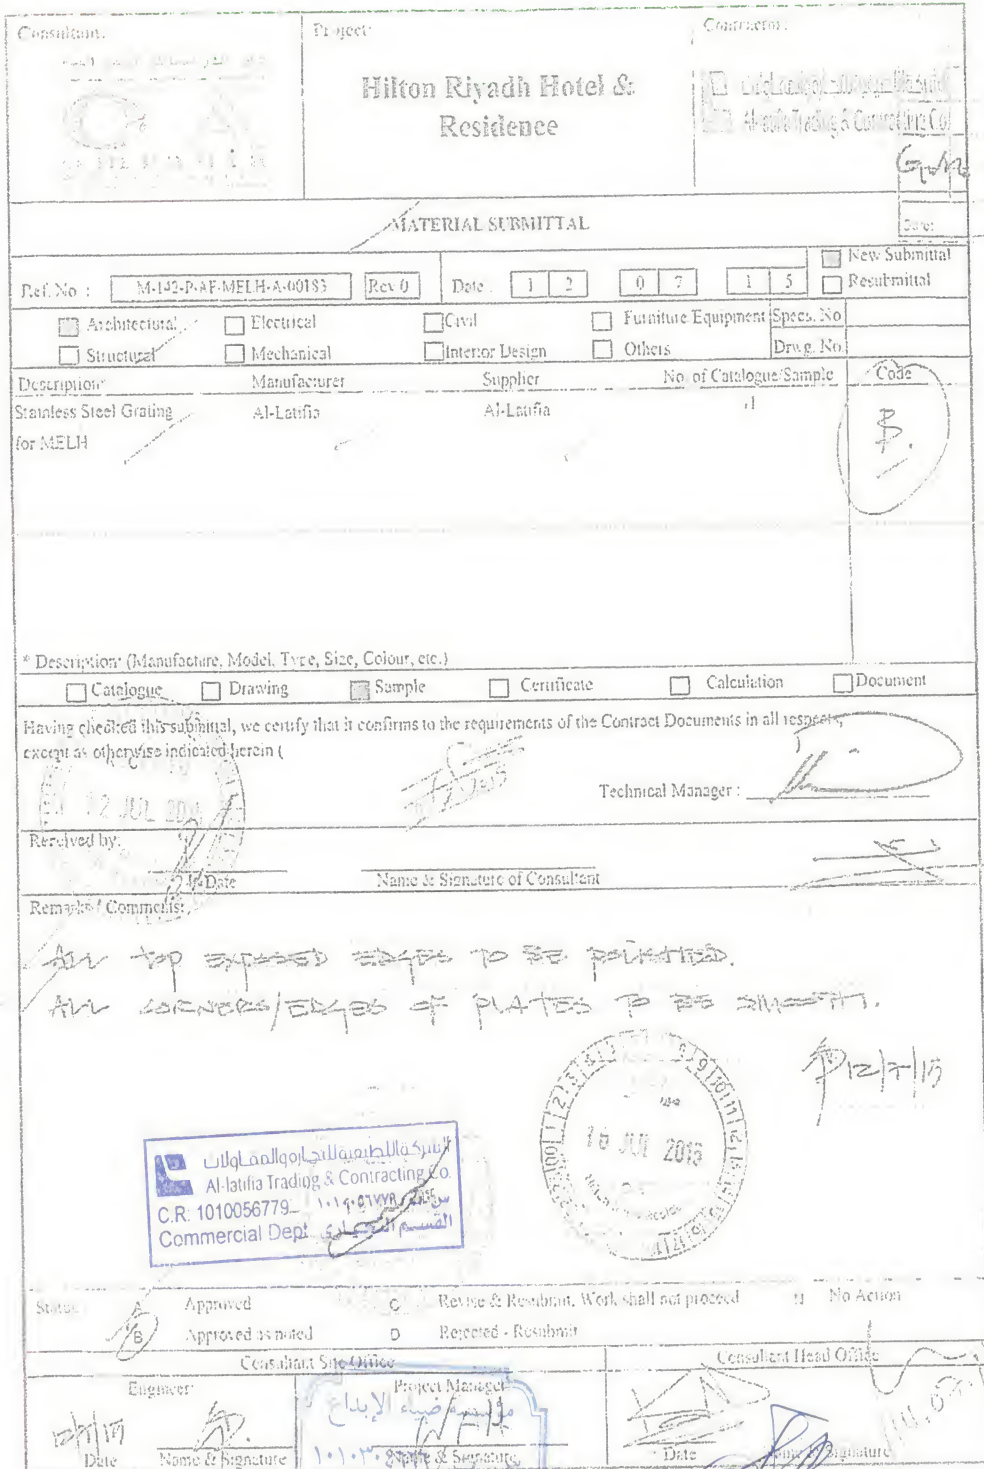 Consultant:
Project:
Contractor:
Hilton Riyadh Hotel &
Residence
Al-latifia Trading & Contracting Co.
Date:
MATERIAL SUBMITTAL
New Submittal
Resubmittal
Ref. No : M-142-P-AF-MELH-A-00183 Rev 0 Date : 1 2 0 7 1 5
Architectural Electrical Civil Furniture Equipment Specs. No
Structural Mechanical Interior Design Others Drwg. No.
Description* Manufacturer Supplier No. of Catalogue/Sample Code
Stainless Steel Grating Al-Latifia Al-Latifia 1 B.
for MELH
* Description: (Manufacture, Model, Type, Size, Colour, etc.)
Catalogue Drawing Sample Certificate Calculation Document
Having checked this submittal, we certify that it confirms to the requirements of the Contract Documents in all respects,
except as otherwise indicated herein (
Technical Manager :
12 JUL
Received by:
Date Name & Signature of Consultant
Remarks / Comments:
ALL TOP EXPOSED EDGES TO BE
ALL CORNERS/EDGES OF PLATES TO BE SMOOTH.
12/7/15
JUL 2015
الشركة اللطيفية للتجارة والمقاولات
Al-latifia Trading & Contracting Co.
C.R. 1010056779 س.ت ١٠١٠٠٥٦٧٧٩
Commercial Dept القسم التجاري
Status A Approved C Revise & Resubmit, Work shall not proceed No Action
B Approved as noted D Rejected - Resubmit
Consultant Site Office Consultant Head Office
Engineer: Project Manager
مؤسسة ضياء الإبداع
12/7/15
Date Name & Signature Name & Signature Date Name & Signature